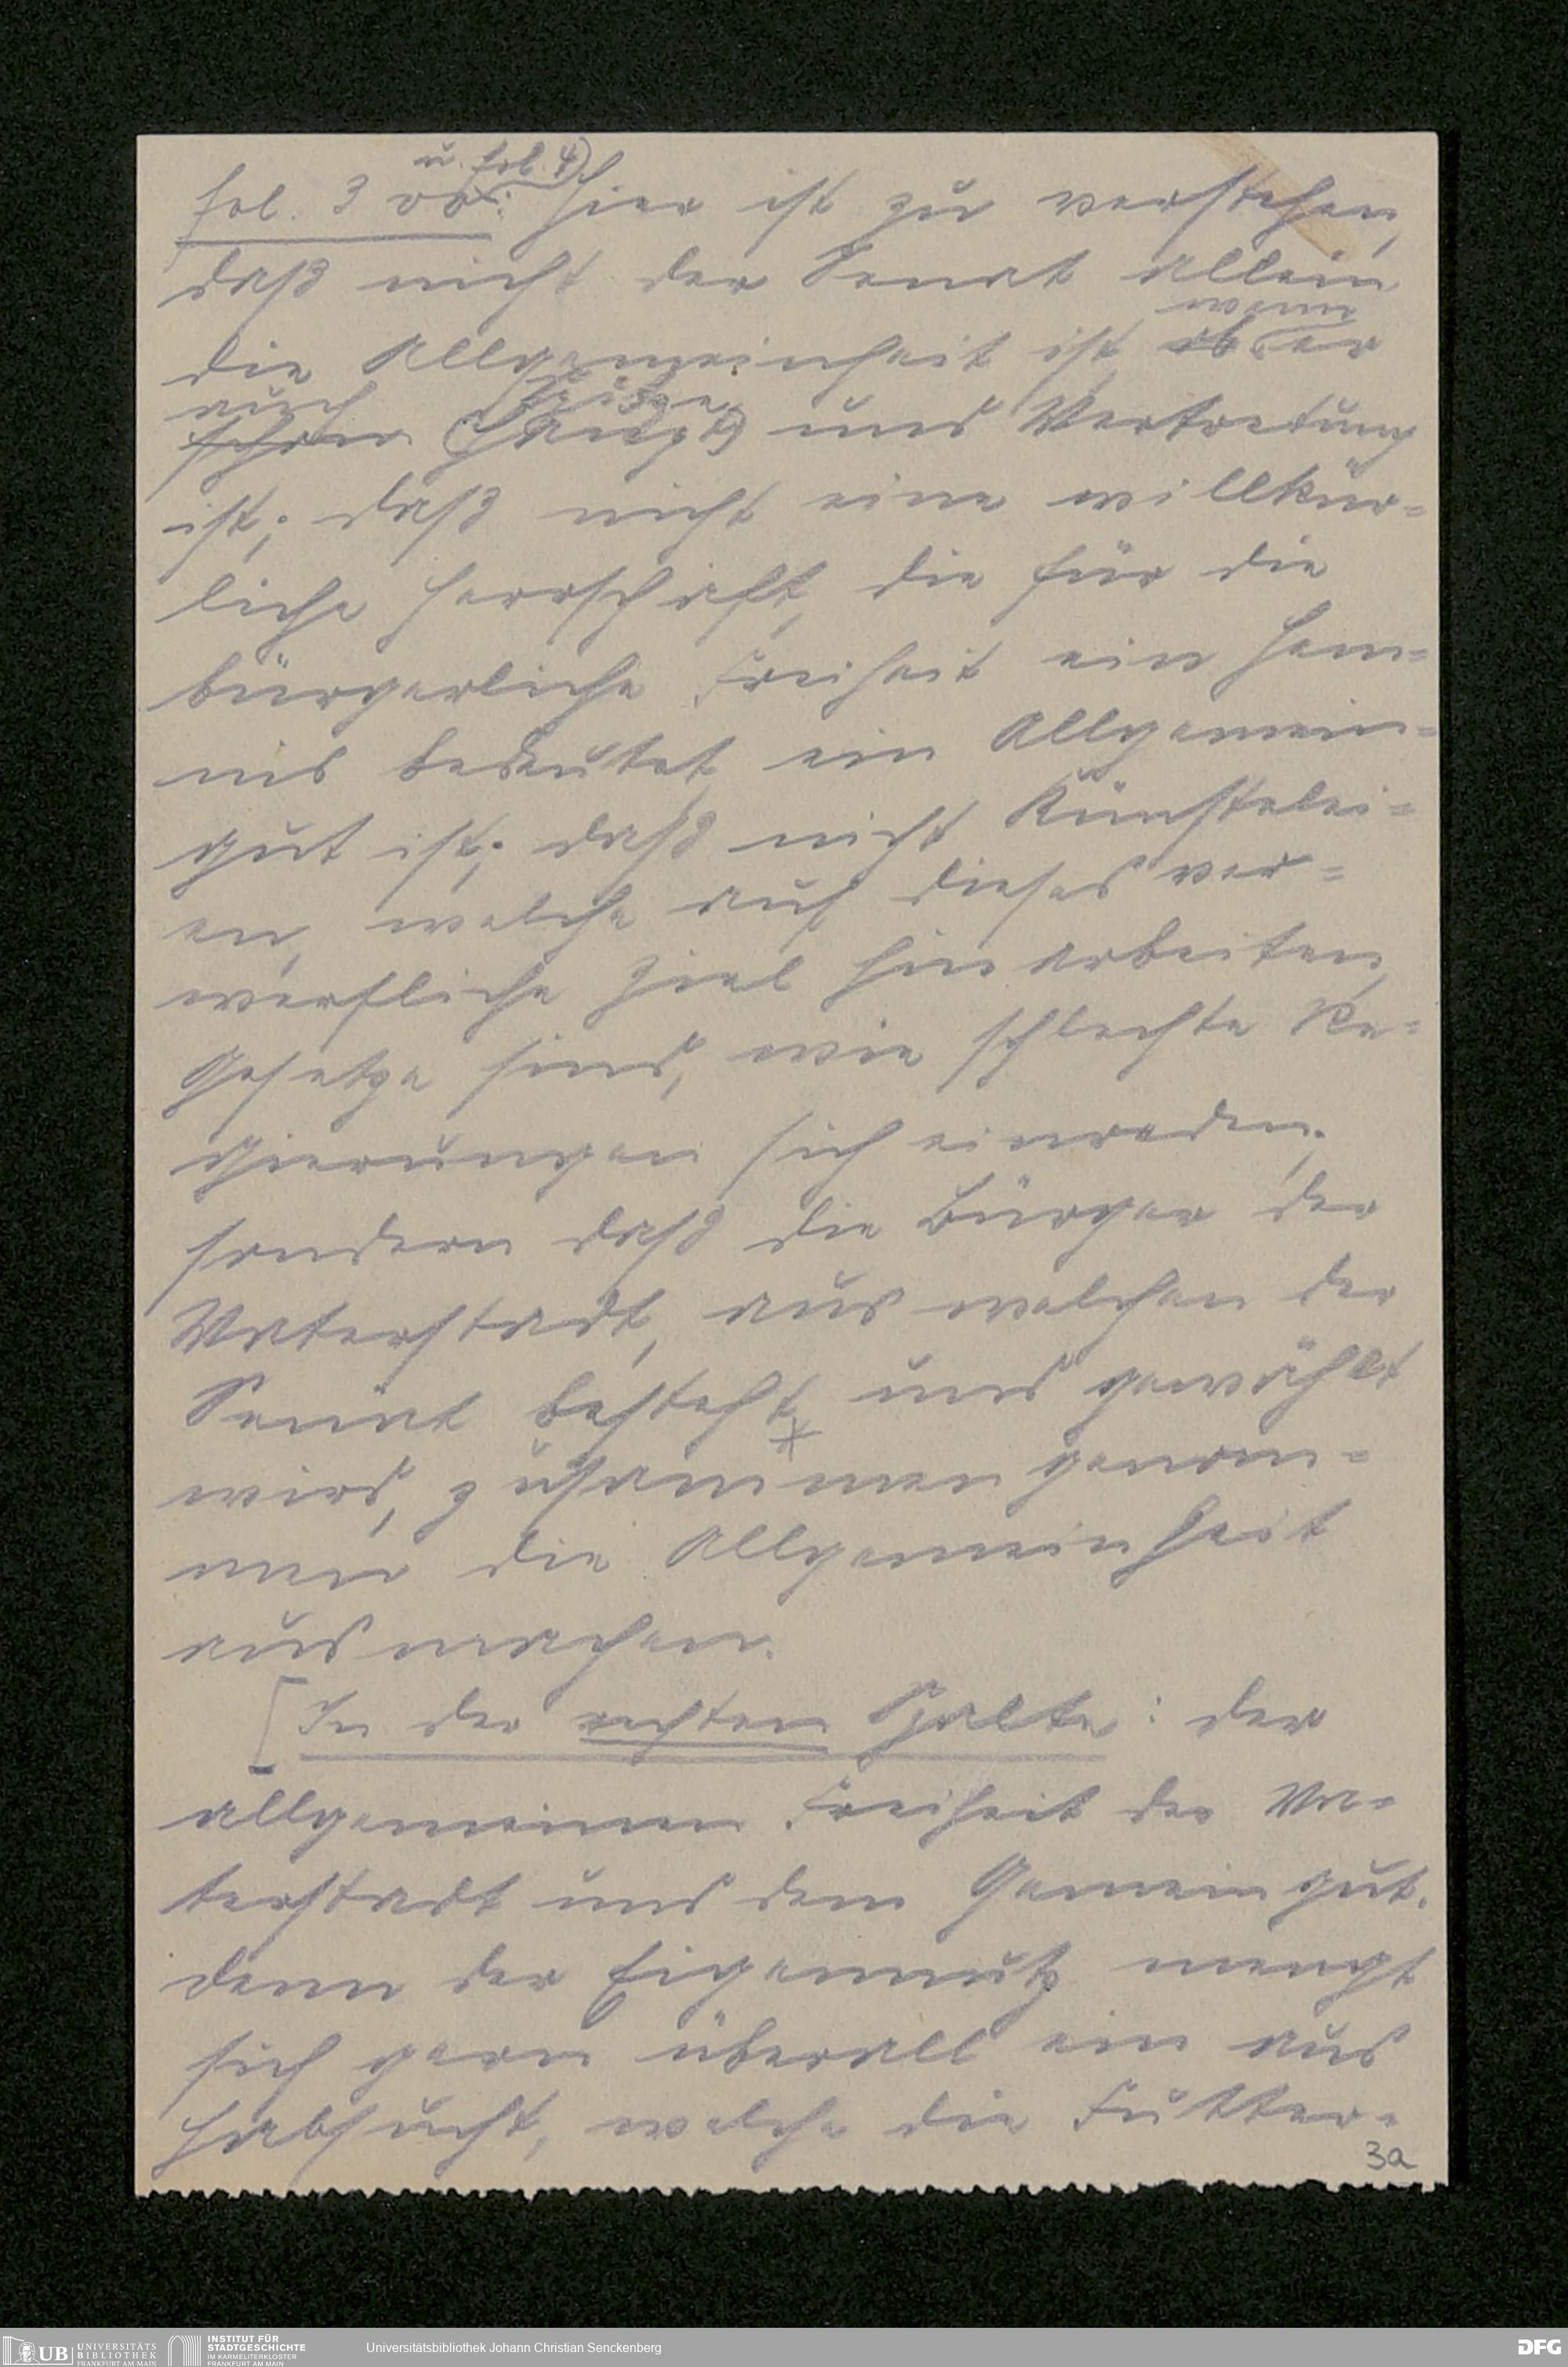 u. fol. 4)
fol. 3 vo: Hier ist zu verstehen,
daß nicht der Senat allein
wenn
die Allgemeinheit ist, ob er
auch Spitze
schon (Haupt) und Vertretung
ist; daß nicht eine willkür-
liche Herrschaft, die für die
bürgerliche Freiheit ein Hem-
nis bedeutet, ein Allgemein-
gut ist; daß nicht Künstelei-
en, welche auf dieses ver-
werfliche Ziel hinarbeiten,
Gesetze sind, wie schlechte Re-
gierungen sich einreden;
sondern daß die Bürger der
Vaterstadt, aus welchen der
Senat besteht und gewählt
wird, zusammen genom-
men die Allgemeinheit
ausmachen.
[In der rechten Spalte: der
allgemeinen Freiheit der Va-
terstadt und dem Gemeingut.
denn der Eigennutz mengt
sich gern überall ein aus
Habsucht, welche die Futter-
3a
UB UNIVERSITÄTS
BIBLIOTHEK
FRANKFURT AM MAIN
INSTITUT FÜR
STADTGESCHICHTE
IM KARMELITERKLOSTER
FRANKFURT AM MAIN
Universitätsbibliothek Johann Christian Senckenberg
DFG